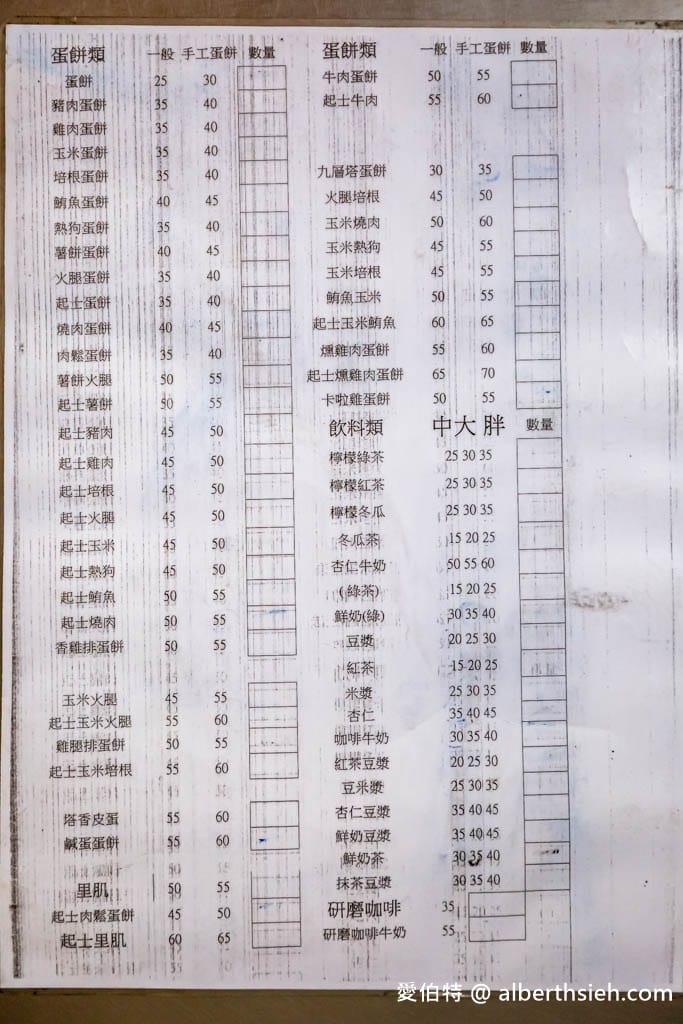 蛋餅類 一般 手工蛋餅 數量
蛋餅 25 30
豬肉蛋餅 35 40
雞肉蛋餅 35 40
玉米蛋餅 35 40
培根蛋餅 35 40
鮪魚蛋餅 40 45
熱狗蛋餅 35 40
薯餅蛋餅 40 45
火腿蛋餅 35 40
起士蛋餅 35 40
燒肉蛋餅 40 45
肉鬆蛋餅 35 40
薯餅火腿 50 55
起士薯餅 50 55
起士豬肉 45 50
起士雞肉 45 50
起士培根 45 50
起士火腿 45 50
起士玉米 45 50
起士熱狗 45 50
起士鮪魚 50 55
起士燒肉 50 55
香雞排蛋餅 50 55
玉米火腿 45 55
起士玉米火腿 55 60
雞腿排蛋餅 50 55
起士玉米培根 55 60
塔香皮蛋 55 60
鹹蛋蛋餅 55 60
里肌 50 55
起士肉鬆蛋餅 45 50
起士里肌 60 65
蛋餅類 一般 手工蛋餅 數量
牛肉蛋餅 50 55
起士牛肉 55 60
九層塔蛋餅 30 35
火腿培根 45 50
玉米燒肉 50 60
玉米熱狗 45 55
玉米培根 45 55
鮪魚玉米 50 55
起士玉米鮪魚 60 65
燻雞肉蛋餅 55 60
起士燻雞肉蛋餅 65 70
卡啦雞蛋餅 50 55
飲料類 中大 胖 數量
檸檬綠茶 25 30 35
檸檬紅茶 25 30 35
檸檬冬瓜 25 30 35
冬瓜茶 15 20 25
杏仁牛奶 50 55 60
(綠茶) 15 20 25
鮮奶(綠) 30 35 40
豆漿 20 25 30
紅茶 15 20 25
米漿 25 30 35
杏仁 35 40 45
咖啡牛奶 30 35 40
紅茶豆漿 20 25 30
豆米漿 25 30 35
杏仁豆漿 35 40 45
鮮奶豆漿 35 40 45
鮮奶茶 30 35 40
抹茶豆漿 30 35 40
研磨咖啡 35
研磨咖啡牛奶 55
愛伯特 @ alberthsieh.com